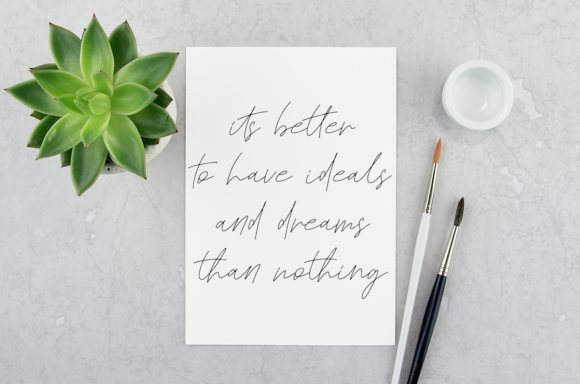 its better
to have ideals
and dreams
than nothing